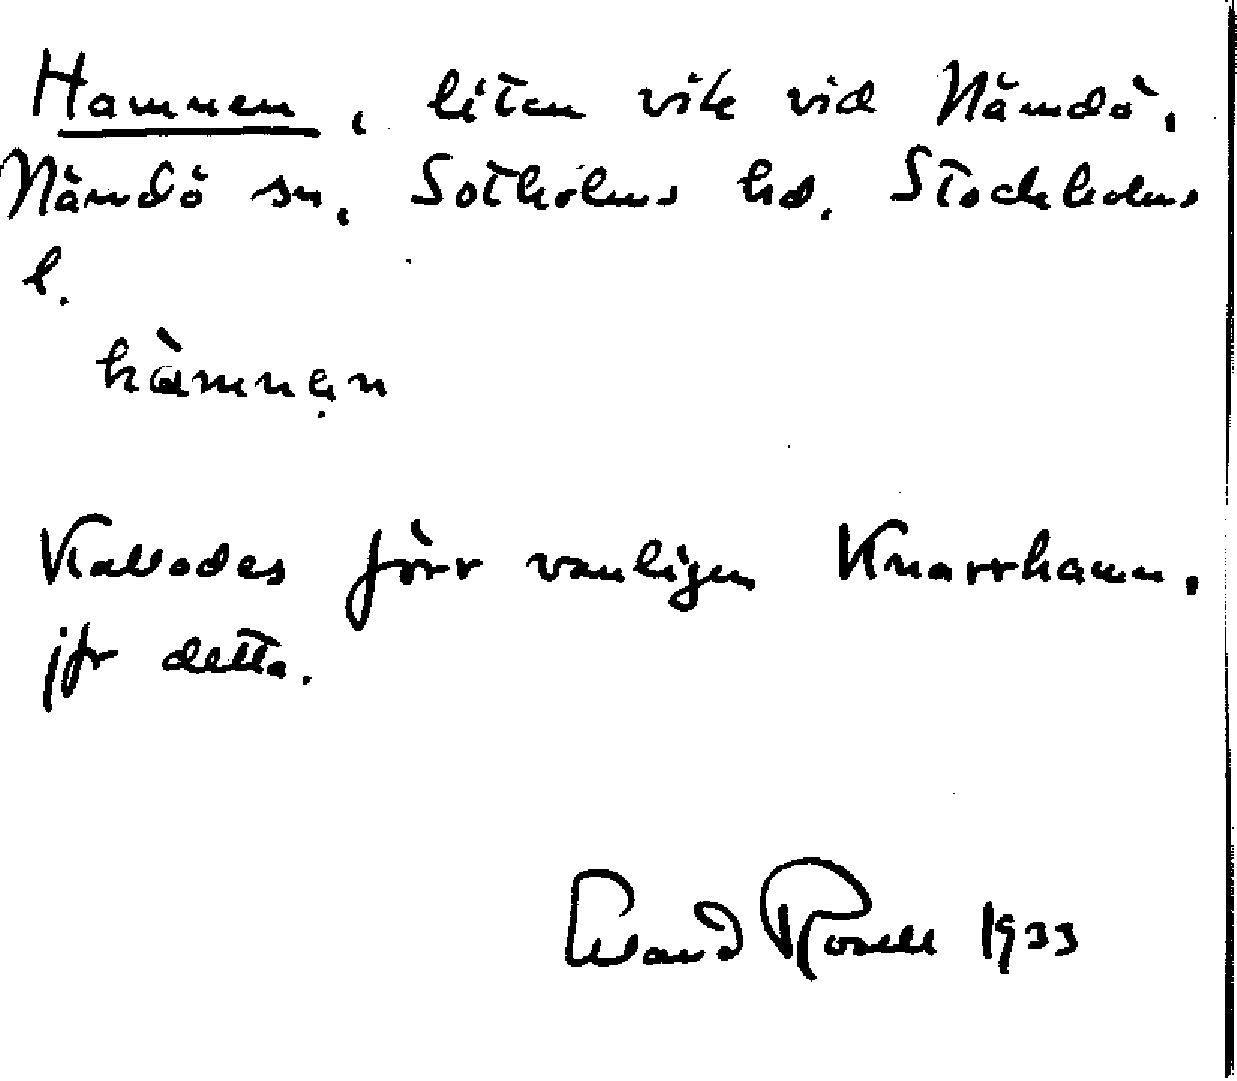 Hamnen, liten vik vid Nämdö,
Nämdö sn, Sotholms hd. Stockholms
l.
hàmnạn
Kallades förr vanligen Knarrhamn,
jfr detta.
Erland Rosell 1933